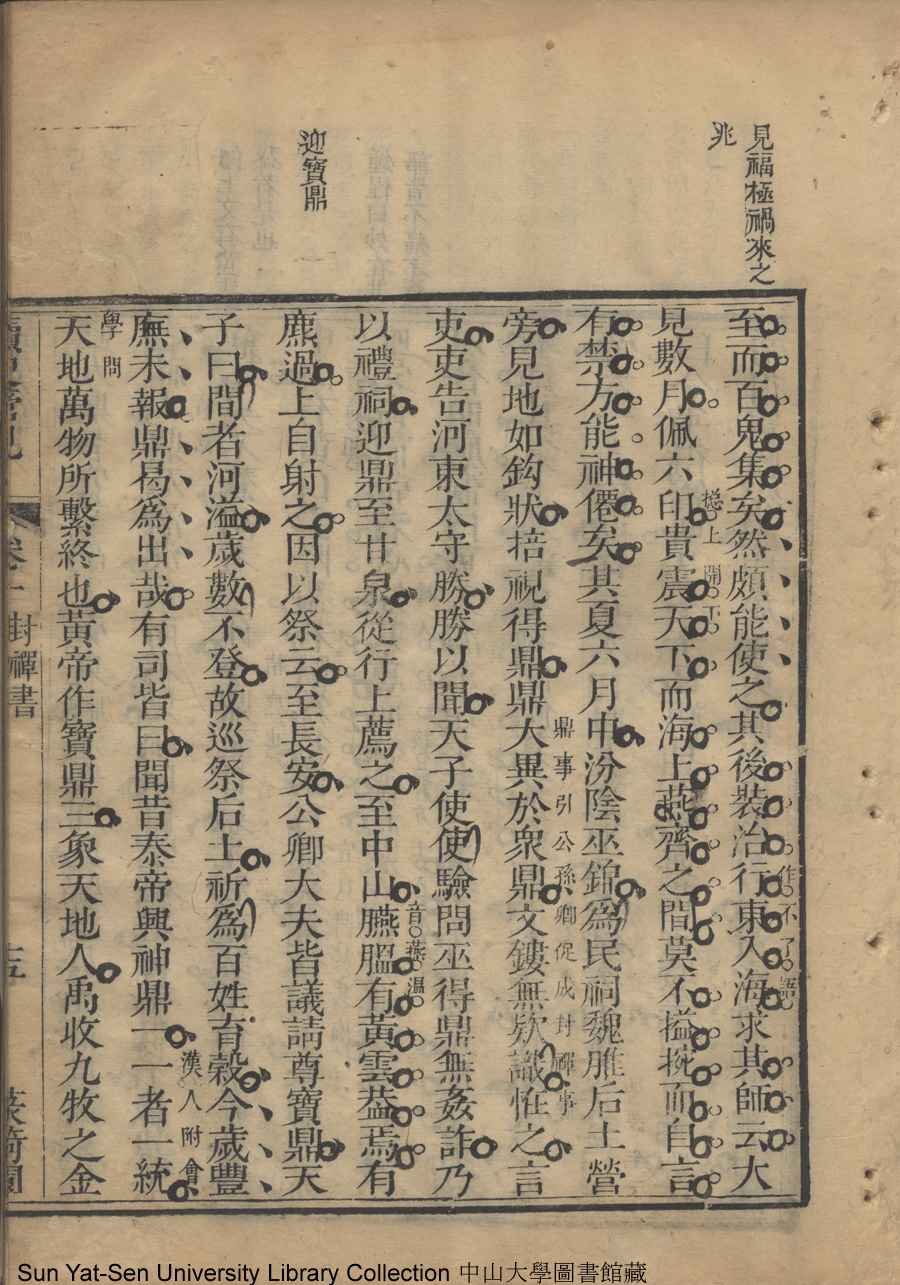 見福極禍來之
兆
迎寶鼎
至而百鬼集矣然頗能使之其後裝治行東入海求其師云大
作不了語
見數月佩六印貴震天下而海上燕齊之間莫不搤捥而自言
揔上開下
有禁方能神僊矣其夏六月中汾陰巫錦為民祠魏脽后土營
旁見地如鈎狀掊視得鼎鼎大異於衆鼎文鏤無欵識恠之言
鼎事引公孫卿促成封禪事
吏吏告河東太守勝勝以聞天子使使驗問巫得鼎無姦詐乃
以禮祠迎鼎至甘泉從行上薦之至中山臙腽有黃雲葢焉有
音燕溫
麃過上自射之因以祭云至長安公卿大夫皆議請尊寶鼎天
子曰間者河溢歲數不登故巡祭后土祈為百姓育穀今歲豐
廡未報鼎曷為出哉有司皆曰聞昔泰帝興神鼎一一者一統
漢人附會
學問
天地萬物所繫終也黃帝作寶鼎三象天地人禹收九牧之金
卷一封禪書
Sun Yat-Sen University Library Collection 中山大學圖書館藏